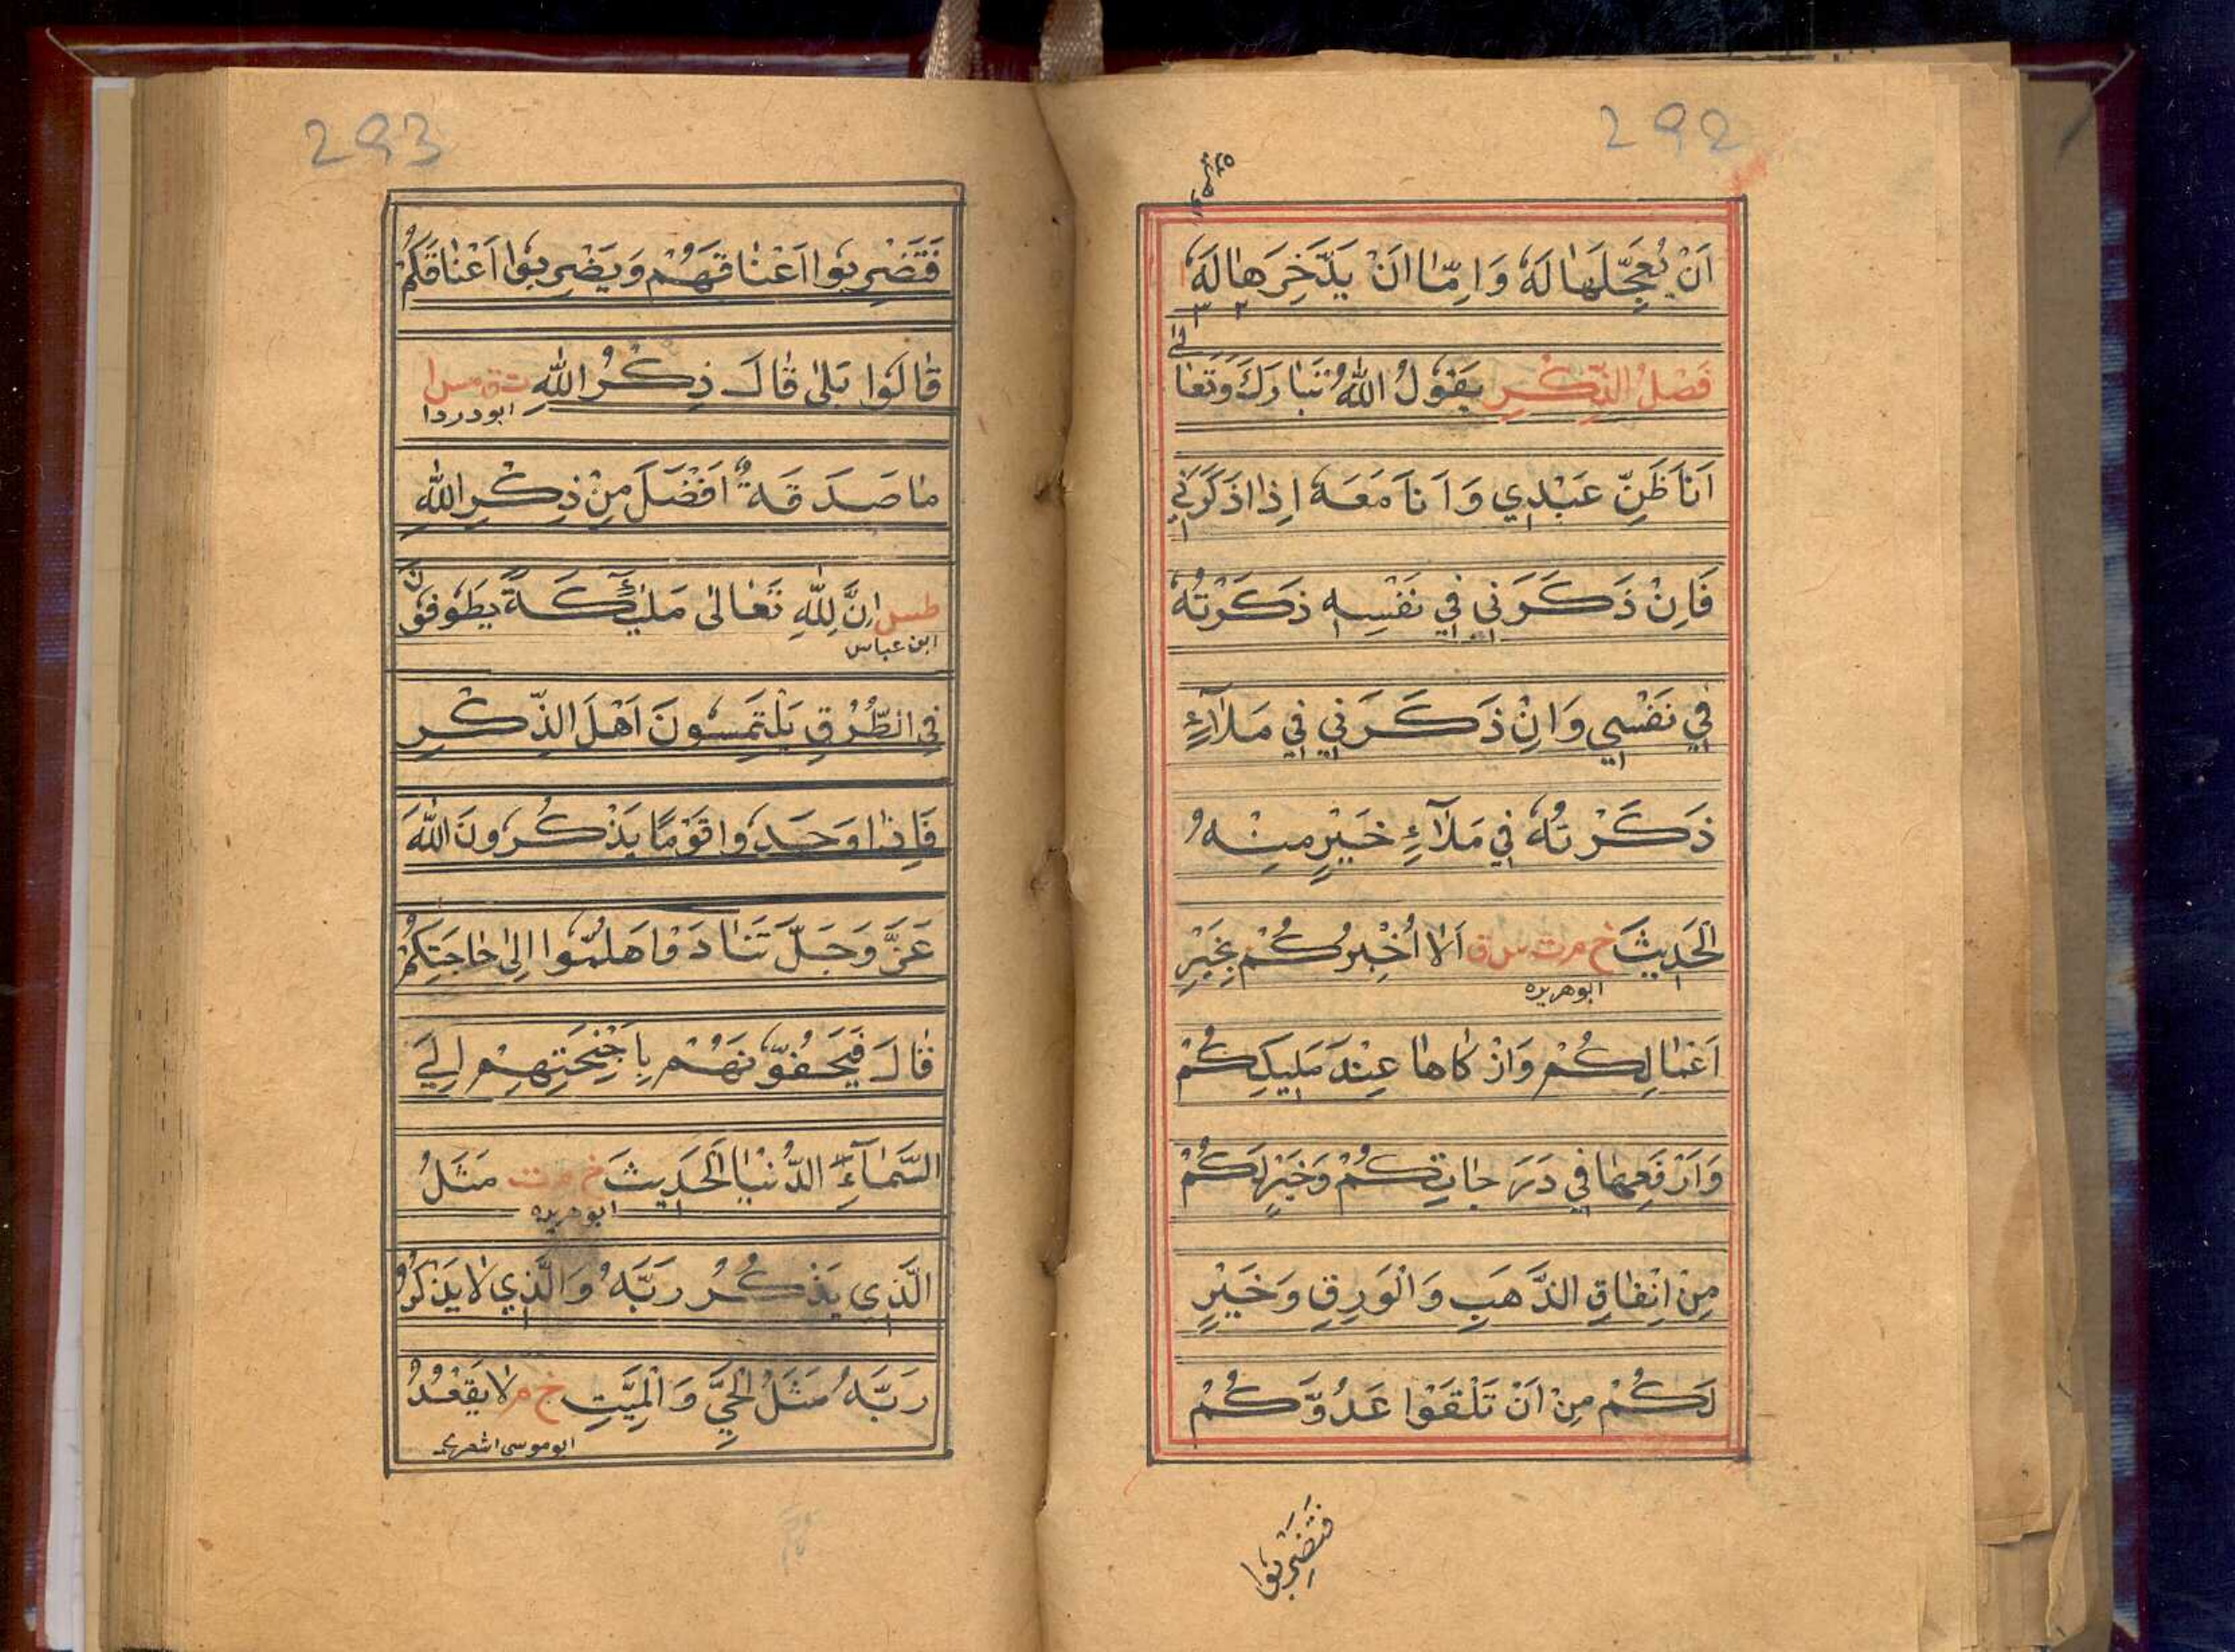 292
اَنْ يُعَجِّلَهَا لَهُ وَاِمَّا اَنْ يَدَّخِرَهَا لَهُ
٢ ٣
فَضْلُ الذِّكْرِ يَقُولُ اللّٰهُ تَبَارَكَ وَتَعَالٰى
اَنَا ظَنِّ عَبْدِي وَاَنَا مَعَهُ اِذَا ذَكَرَنِي
فَاِنْ ذَكَرَنِي فِي نَفْسِهِ ذَكَرْتُهُ
فِي نَفْسِي وَاِنْ ذَكَرَنِي فِي مَلَاءٍ
ذَكَرْتُهُ فِي مَلَاءٍ خَيْرٍ مِنْهُ
الْحَدِيثَ خ م ت س ق اَلَا اُخْبِرُكُمْ بِخَيْرِ
ابوهريره
اَعْمَالِكُمْ وَاَزْكَاهَا عِنْدَ مَلِيكِكُمْ
وَاَرْفَعِهَا فِي دَرَجَاتِكُمْ وَخَيْرٍ لَكُمْ
مِنْ اِنْفَاقِ الذَّهَبِ وَالْوَرِقِ وَخَيْرٍ
لَكُمْ مِنْ اَنْ تَلْقَوْا عَدُوَّكُمْ
فَتَضْرِبُوا
293
فَتَضْرِبُوا اَعْنَاقَهُمْ وَيَضْرِبُوا اَعْنَاقَكُمْ
قَالُوا بَلٰى قَالَ ذِكْرُ اللّٰهِ ت ق مس ا
ابودردا
مَا صَدَقَةٌ اَفْضَلَ مِنْ ذِكْرِ اللّٰهِ
طس اِنَّ لِلّٰهِ تَعَالٰى مَلٰئِكَةً يَطُوفُونَ
ابن عباس
فِي الطُّرُقِ يَلْتَمِسُونَ اَهْلَ الذِّكْرِ
فَاِذَا وَجَدُوا قَوْمًا يَذْكُرُونَ اللّٰهَ
عَزَّ وَجَلَّ تَنَادَوْا هَلُمُّوا اِلٰى حَاجَتِكُمْ
قَالَ فَيَحُفُّونَهُمْ بِاَجْنِحَتِهِمْ اِلَى
السَّمَآءِ الدُّنْيَا الْحَدِيثَ خ م ت مَثَلُ
ابوهريره
الَّذِي يَذْكُرُ رَبَّهُ وَالَّذِي لَا يَذْكُرُ
رَبَّهُ مَثَلُ الْحَيِّ وَالْمَيِّتِ خ م لَا يَقْعُدُ
ابوموسى اشعرى